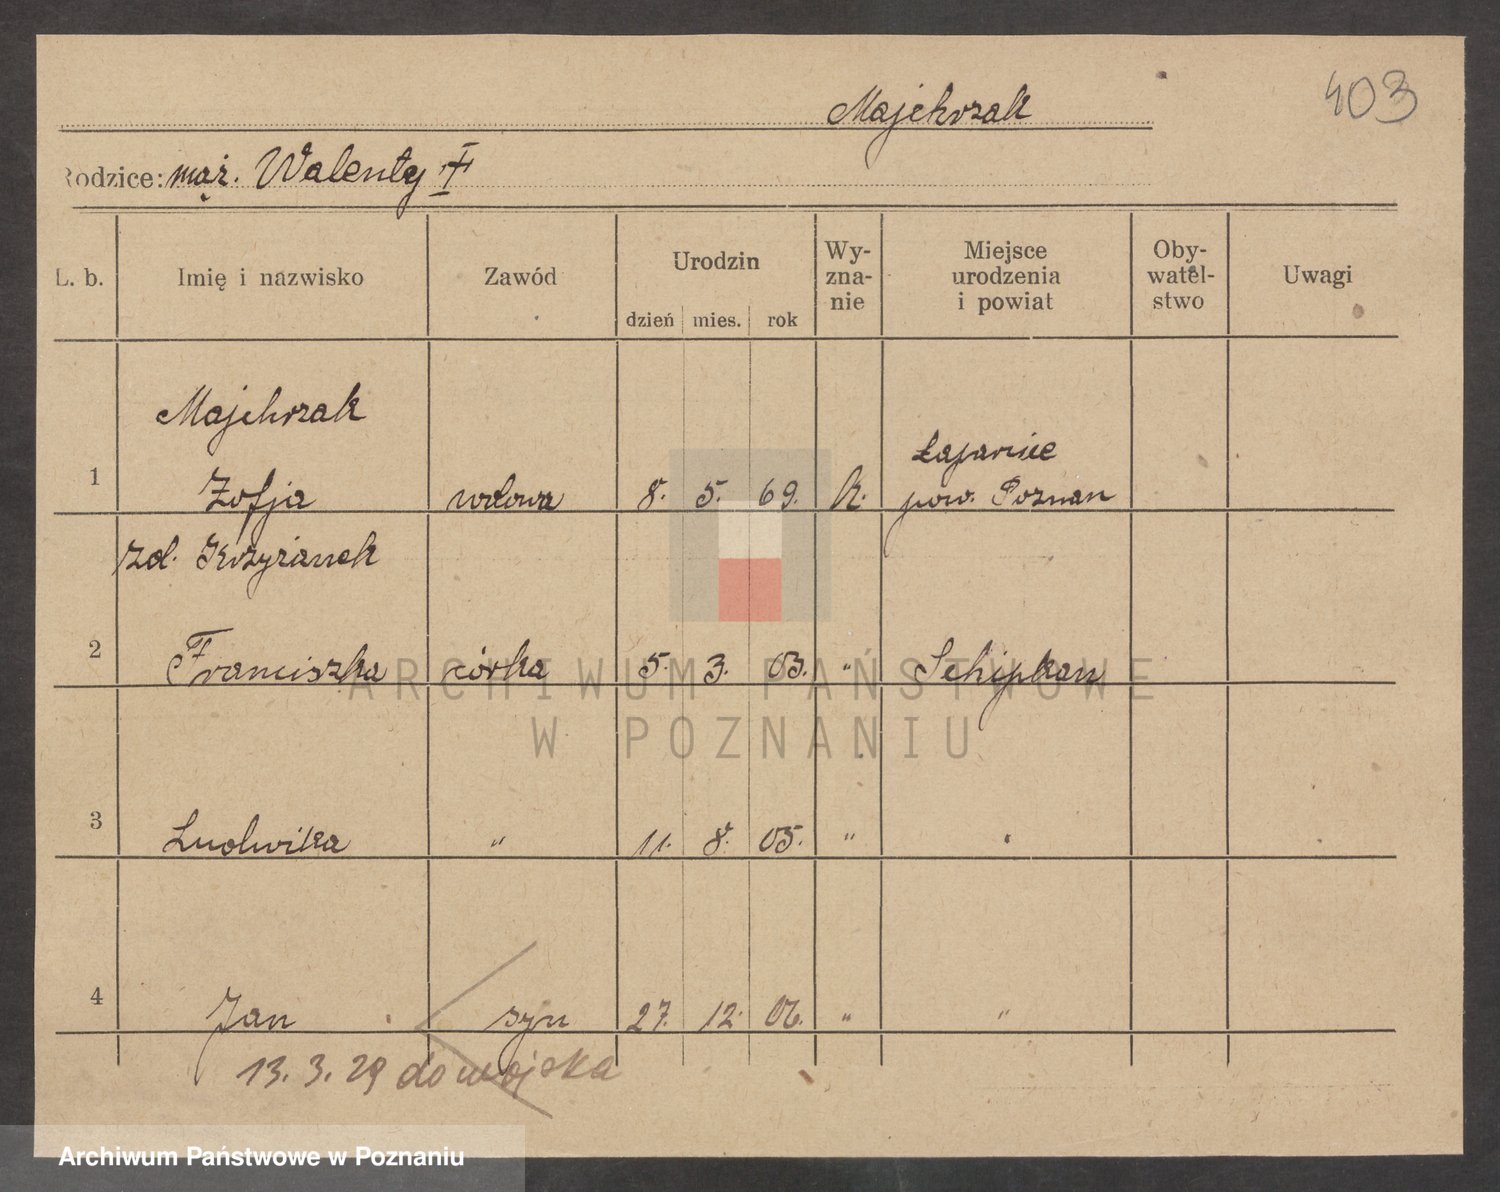 403
Majchrzak
Rodzice: mąż. Walenty †
L. b. Imię i nazwisko Zawód Urodzin dzień mies. rok Wy-zna-nie Miejsce urodzenia i powiat Oby-watel-stwo Uwagi
Majchrzak
1 Zofja wdowa 8. 5. 69. k. pow. Poznan
zd. Krzyżanek
2 Franciszka córka 5. 3. 03. " Schipkau
3 Ludwika " 11. 8. 05. " "
4 Jan syn 27. 12. 06. " "
13. 3. 29 do wojska
ARCHIWUM PAŃSTWOWE
W POZNANIU
Archiwum Państwowe w Poznaniu